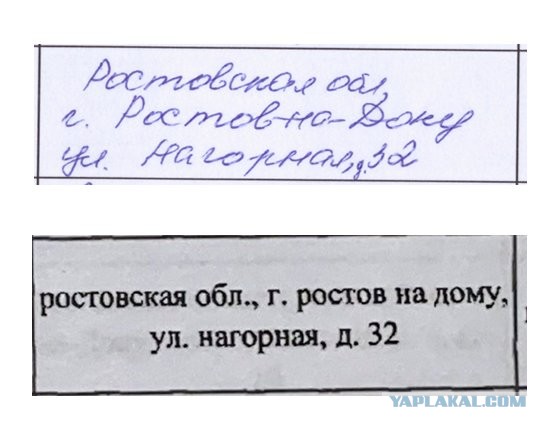 Ростовская обл,
г. Ростов-на-Дону
ул. Нагорная, д.32
ростовская обл., г. ростов на дому,
ул. нагорная, д. 32
YAPLAKAL.COM